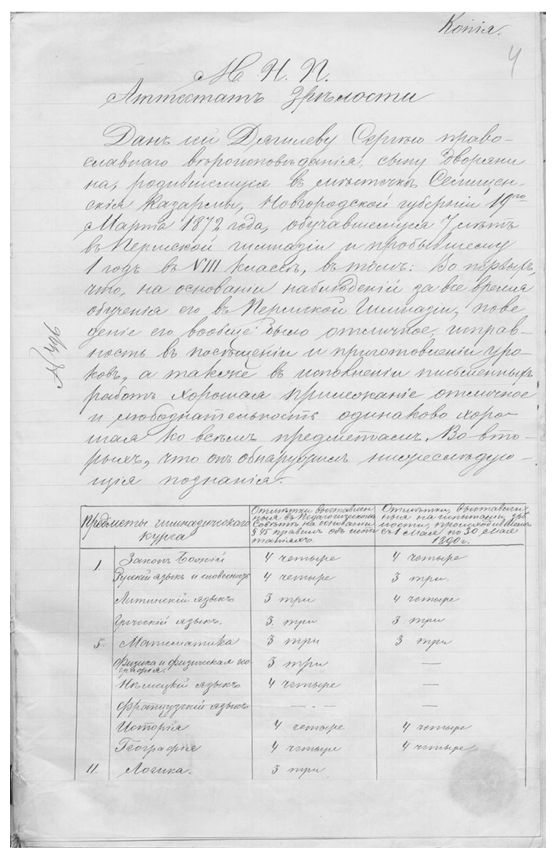 Копія.
4
М. Н. П.
Аттестатъ Зрѣлости
Данъ сей Дягилеву Сергѣю право-
славнаго вѣроисповѣданія, сыну Дворяни
на, родившемуся въ мѣстечкѣ Селищен-
скія Казармы, Новгородской губерніи 19го
Марта 1872 года, обучавшемуся 7 лѣтъ
въ Пермской гимназіи и пробывшему
1 годъ въ VIII классѣ, въ томъ: Во первыхъ,
что, на основаніи наблюденій за все время
обученія его въ Пермской Гимназіи, пове
деніе его вообще было отличное, исправ-
ность въ посѣщеніи и приготовленіи уро-
ковъ, а также въ исполненіи письменныхъ
работъ хорошая прилежаніе отличное
и любознательность одинаково хоро-
шая ко всѣмъ предметамъ. Во вто-
рыхъ, что онъ обнаружилъ нижеслѣдую-
щія познанія.
№ 496
Предметы гимназическаго курса
Отмѣтки выставлен ныя въ Педагогическомъ Совѣтѣ на основаніи § 45 правилъ объ испы таніяхъ
Отмѣтки, выставлен ныя на испытаніи зрѣ лости, происходившемъ съ 1 Мая по 30 Мая 1890 г.
1. Законъ Божій 4 четыре 4 четыре
Русскій языкъ и словесность 4 четыре 3 три.
Латинскій языкъ 3 три 4 четыре
Греческій языкъ. 3 три 3 три
5. Математика 3 три 3 три
Физика и физическая ге ографія. 3 три —
Нѣмецкій языкъ 4 четыре —
Французскій языкъ — —
Исторія 4 четыре 4 четыре
Географія 4 четыре 4 четыре
11. Логика. 3 три